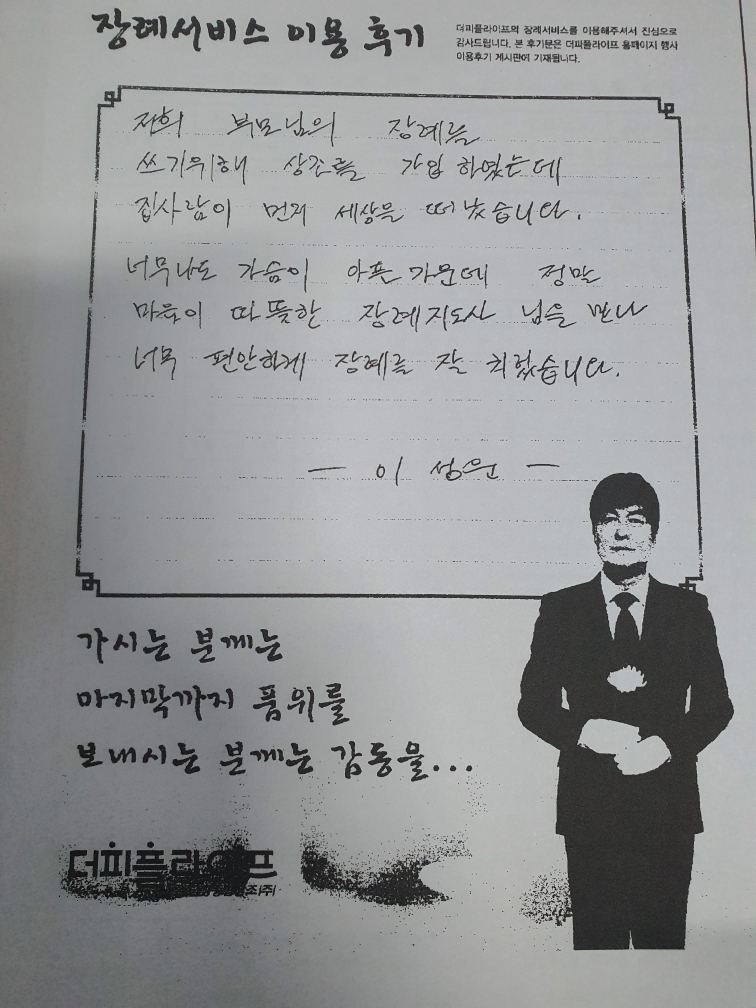 장례서비스 이용 후기
더피플라이프의 장례서비스를 이용해주셔서 진심으로
감사드립니다. 본 후기분은 더피플라이프 홈페이지 행사
이용후기 게시판에 기재됩니다.
저희 부모님의 장례를
쓰기위해 상조를 가입 하였는데
집사람이 먼저 세상을 떠났습니다.
너무나도 가슴이 아픈 가운데 정말
마음이 따뜻한 장례지도사 님을 만나
너무 편안하게 장례를 잘 치렀습니다.
— 이 성윤 —
가시는 분께는
마지막까지 품위를
보내시는 분께는 감동을...
더피플라이프